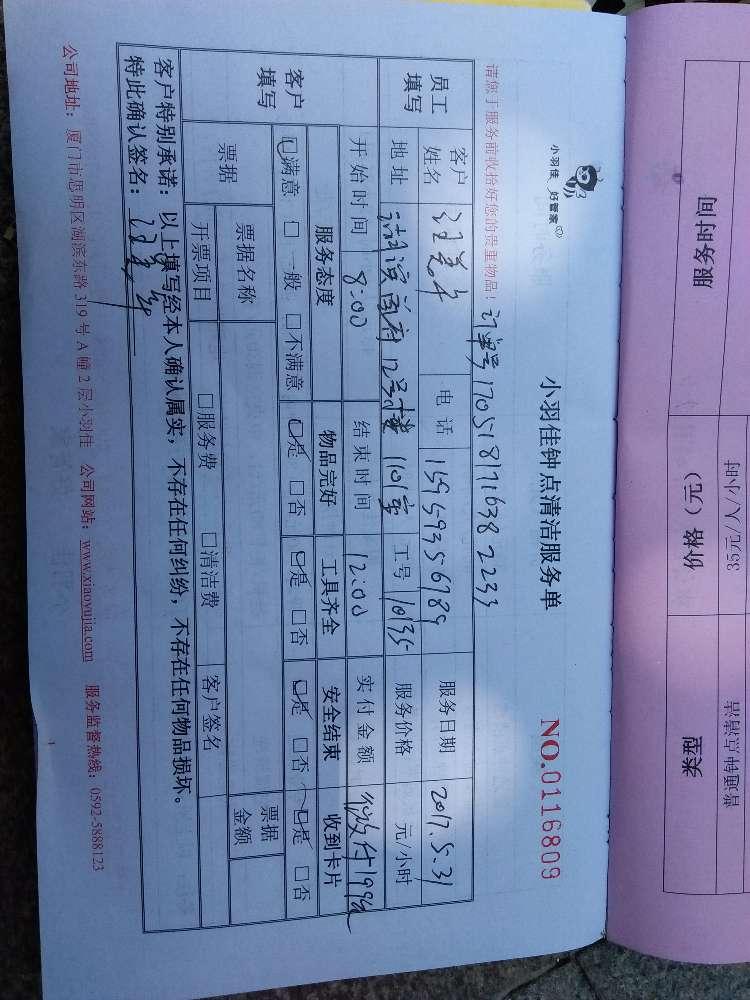 小羽佳 好管家
小羽佳钟点清洁服务单
NO.0116809
请您于服务前收拾好您的贵重物品！ 订单号170518171638 2233
员工填写 客户姓名 电话 15959356789 服务日期 2017.5.31
地址 12号楼 101室 工号 10135 服务价格 元/小时
客户填写 开始时间 8:00 结束时间 12:00 实付金额 微支付199元
服务态度 物品完好 工具齐全 安全结束 收到卡片
☑满意 □一般 □不满意 ☑是 □否 ☑是 □否 ☑是 □否 ☑是 □否
票据 票据名称 票据金额
开票项目 □服务费 □清洁费 客户签名
客户特别承诺：以上填写经本人确认属实，不存在任何纠纷，不存在任何物品损坏。
特此确认签名：
公司地址：厦门市思明区湖滨东路 319 号 A 幢 2 层小羽佳 公司网站：www.xiaoyujia.com 服务监督热线：0592-5888123
类型 价格（元） 服务时间
普通钟点清洁 35元/人/小时